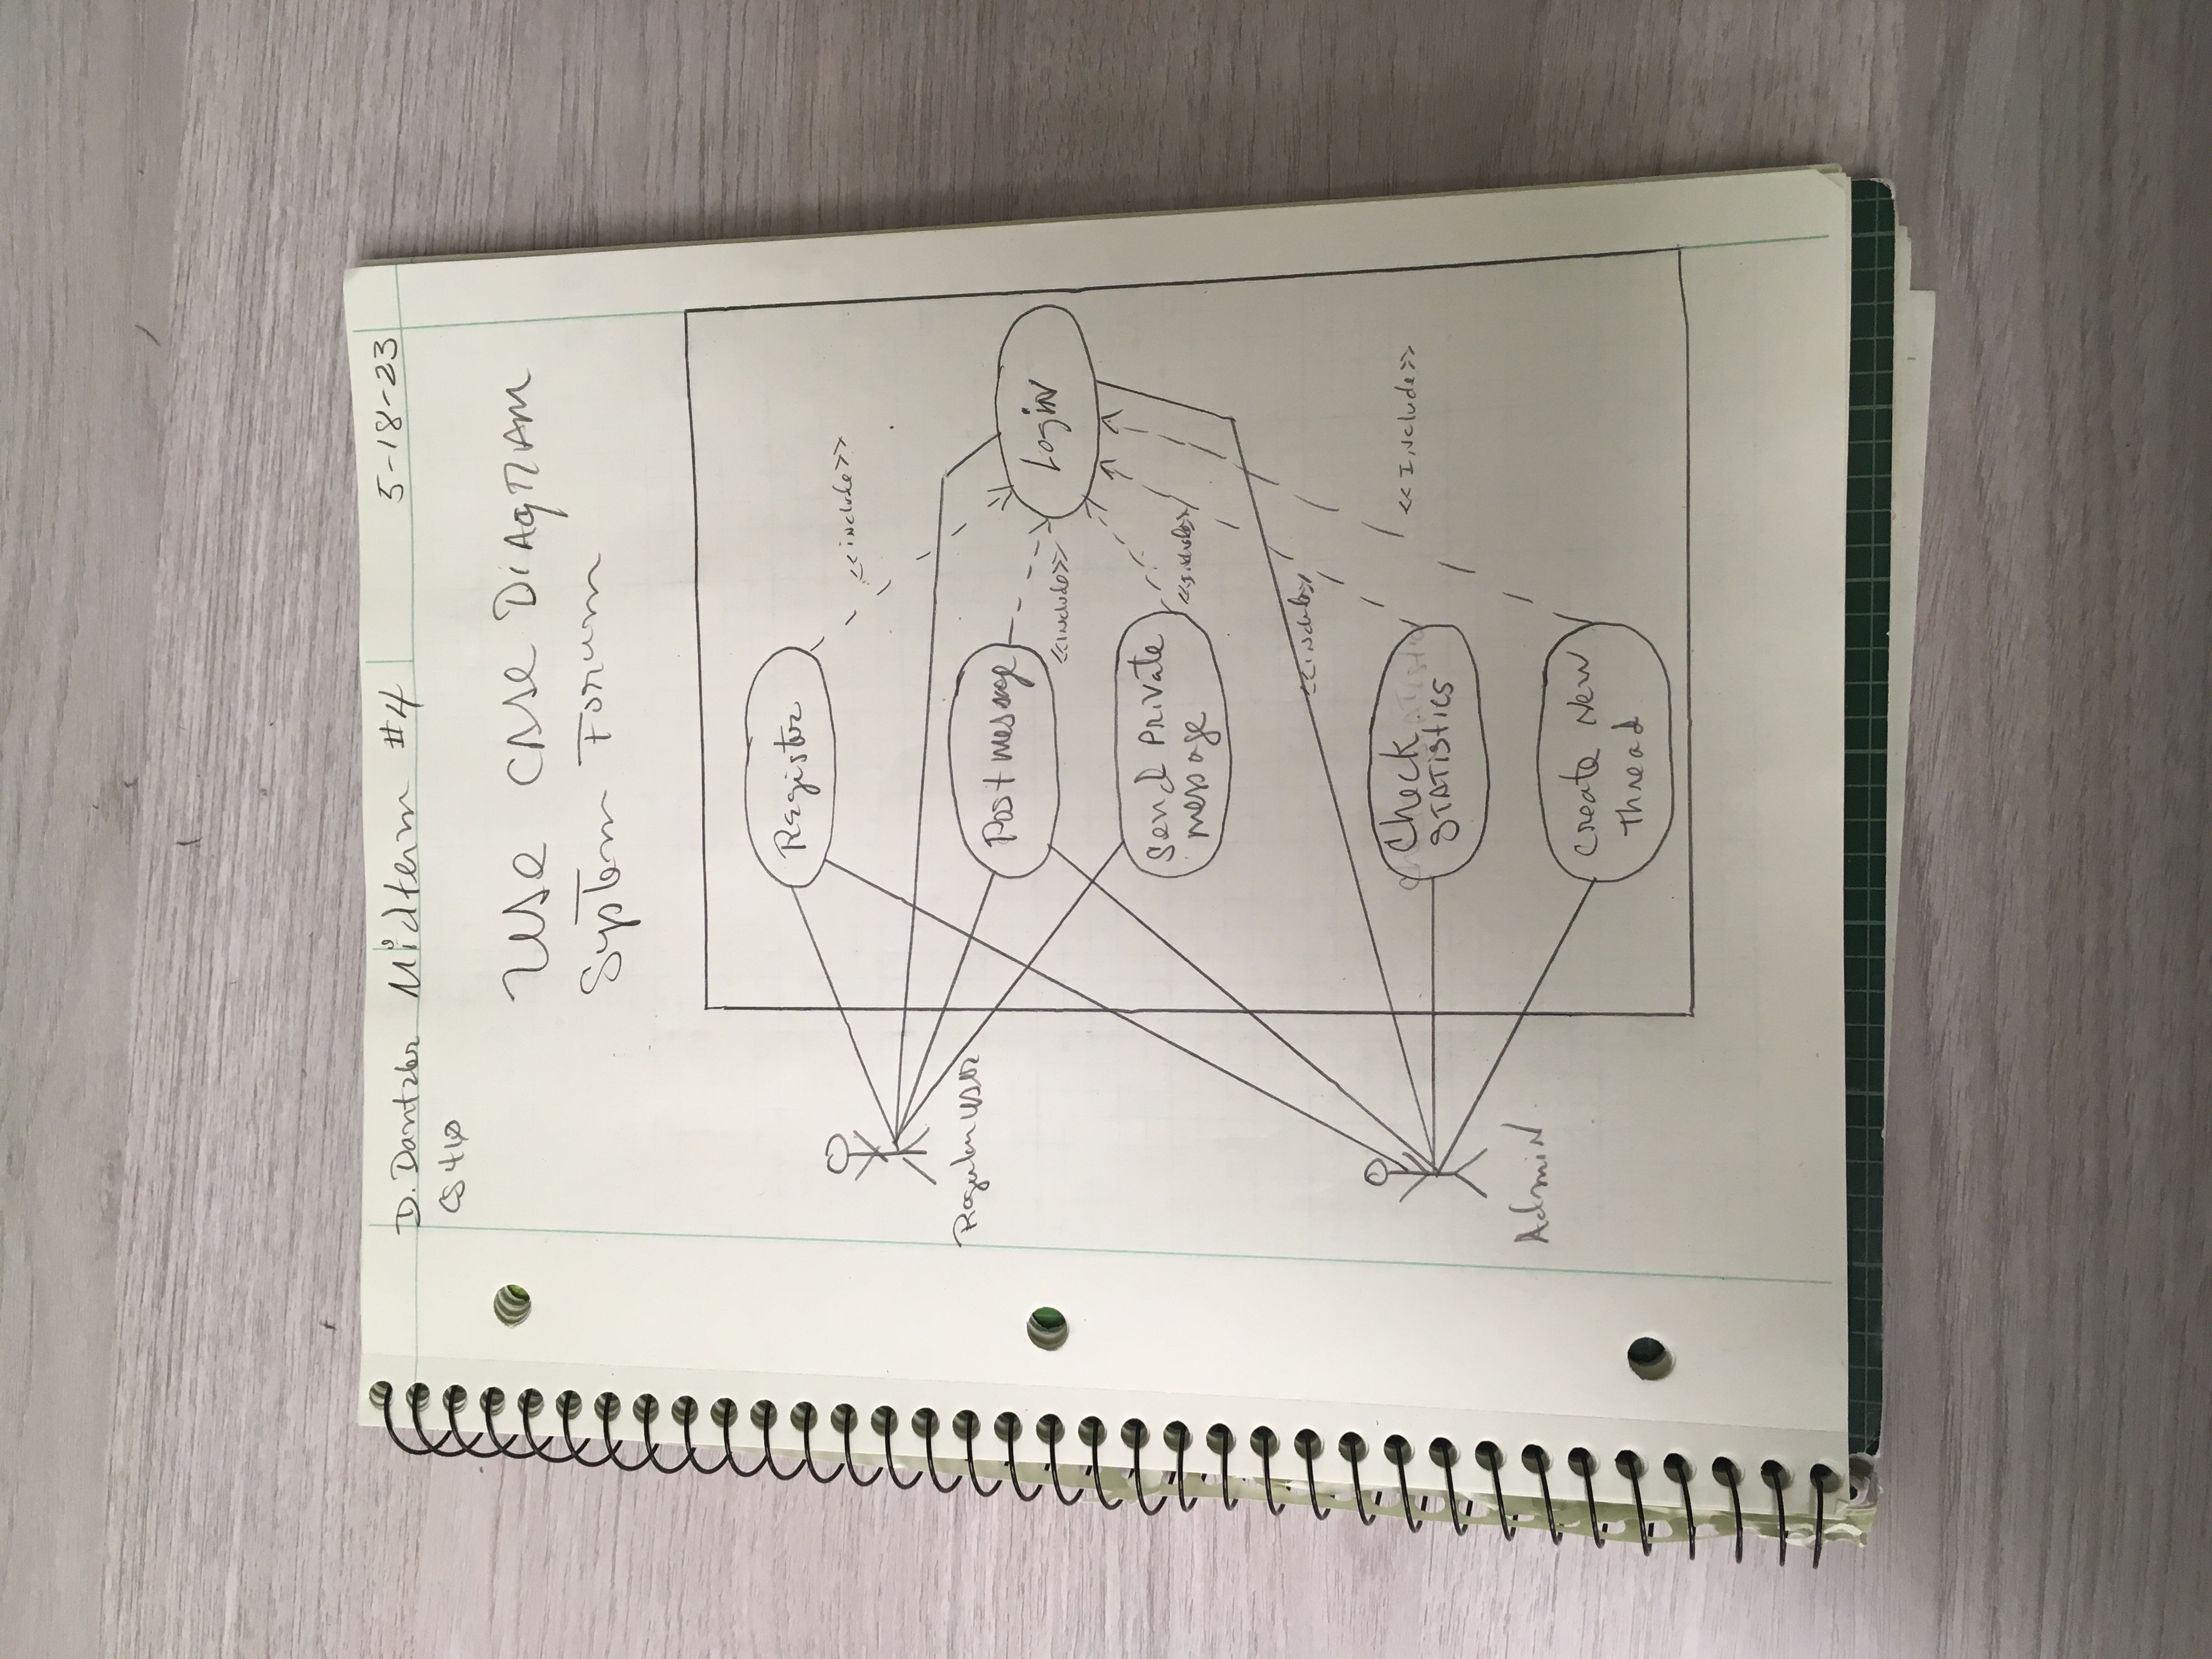 D. Dantzler Midterm #4 5-18-23
CS 410
Use Case Diagram
System Forum
Register
<<include>>
Regular User
Post message
Login
<<include>>
Send Private
message
<<Include>>
<<include>>
Check
Statistics
<<Include>>
Admin
Create New
Thread